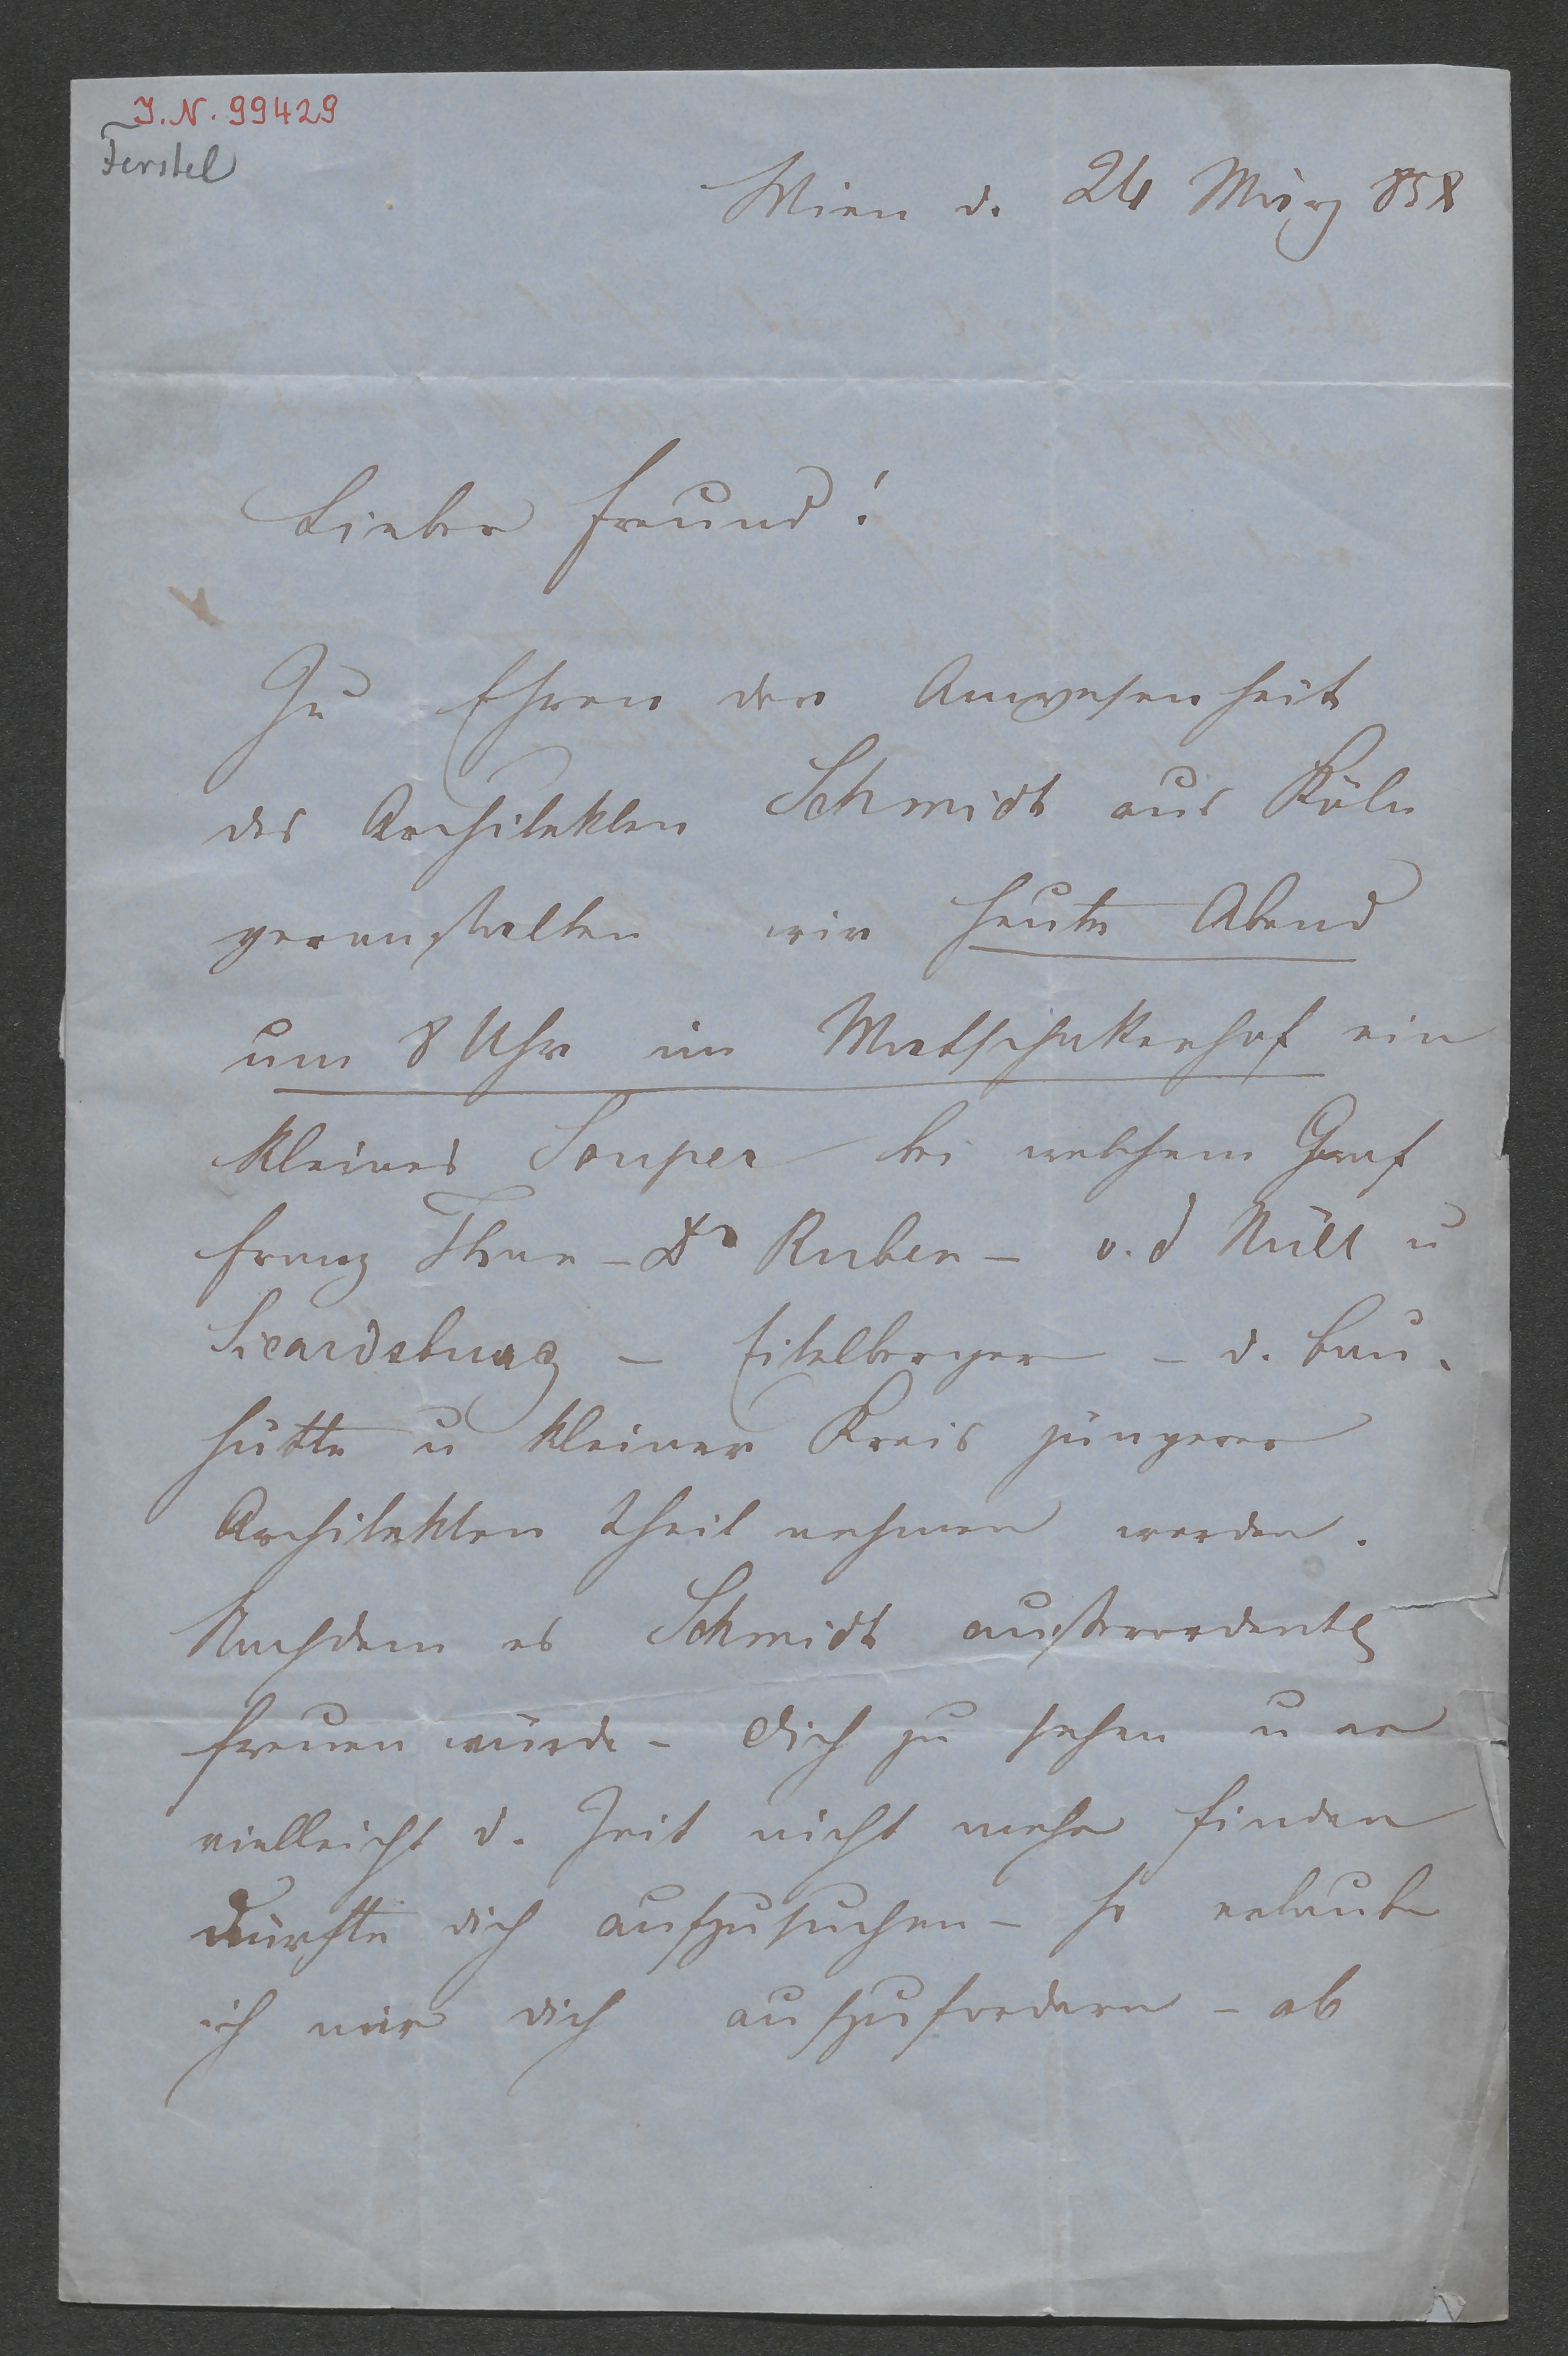 I.N. 99429
Ferstel
Wien d. 24 März 858
Lieber Freund!
Zu Ehren der Anwesenheit
des Architekten Schmidt aus Köln
veranstalten wir heute Abend
um 8 Uhr im Matschakerhof ein
kleines Souper bei welchem Graf
Franz Thun - Dr Ruben - v. d Nüll u
Sicardsburg - Eitelberger - d. Bau-
hütte u kleiner Kreis jüngerer
Architekten theil nehmen werden.
Nachdem es Schmidt außerordentl
freuen würde - dich zu sehen u er
vielleicht d. Zeit nicht mehr finden
dürfte dich aufzusuchen - so erlaube
ich mir dich aufzufordern - ob